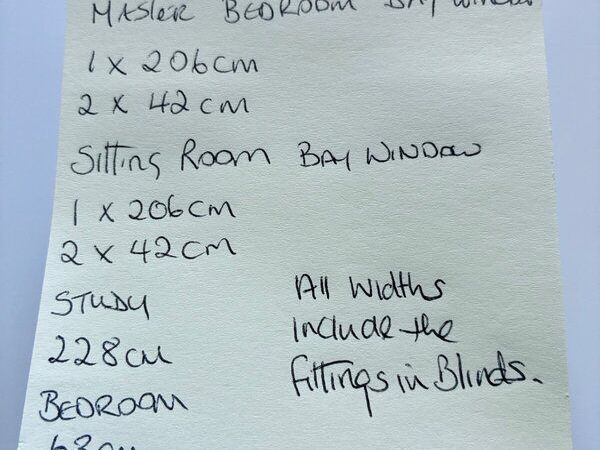 MASTER BEDROOM BAY WINDOW
1 X 206cm
2 X 42cm
Sitting Room BAY WINDOW
1 X 206cm
2 X 42cm
STUDY
228cm
BEDROOM
All Widths
include the
fittings in Blinds.